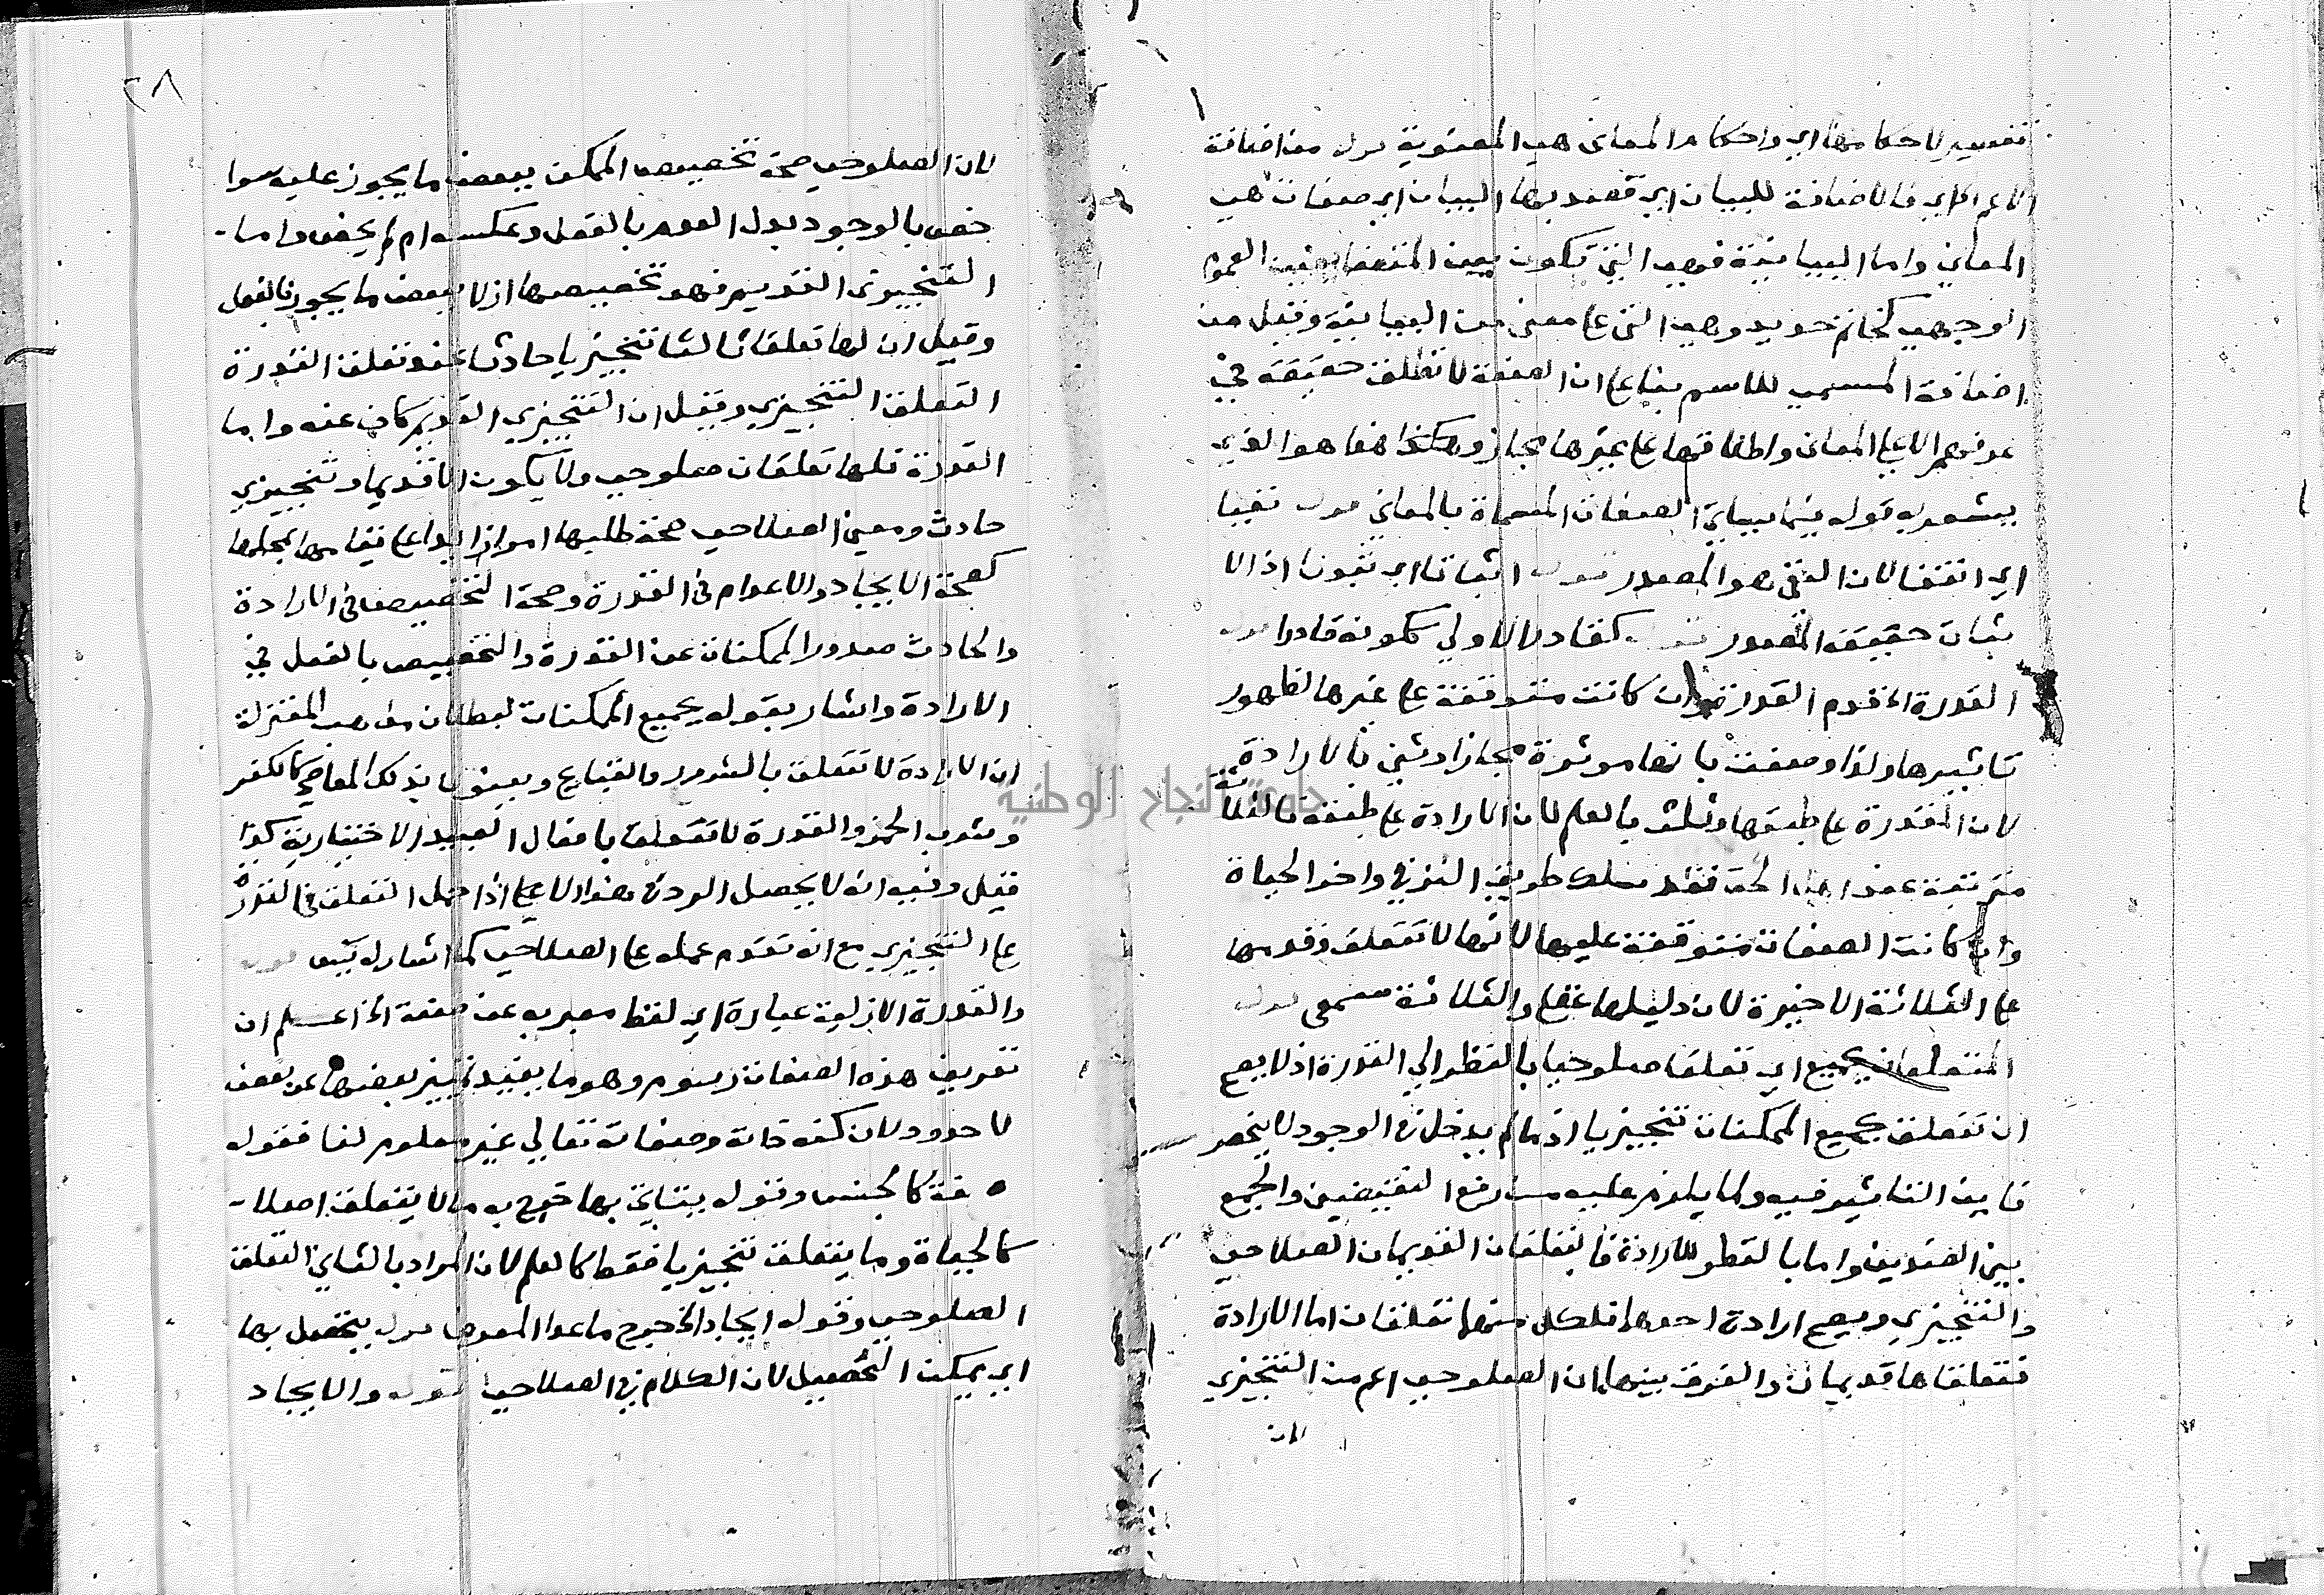 تفسير لاحكامها اي واحكام المعاني هي المعنوية قوله من اضافة
الاعم اي فالاضافة للبيان اي قصد بها البيان اي صفات هي
المعاني واما البيانية فهي التي تكون بين المتضايفين العموم
الوجهي كخاتم حديد وهي التي على معنى من البيانية وقيل من
اضافة المسمى للاسم بناء على ان الصفة لا تطلق حقيقة في
عرفهم الا على المعاني واطلاقها على غيرها مجاز وهكذا هذا هو الذي
يشعر به قوله فيما سياتي الصفات المسماة بالمعاني قوله نفيا
اي انتفا لان النفي هو المصدر قوله اثباتا اي ثبوتا اذ الا
ثبات حقيقة المصدر قوله كقادر الاولى ككونه قادرا قوله
القدرة الخ قدم القدرة وان كانت متوقفة على غيرها لظهور
تاثيرها ولذا وصفت بانها موثرة مجازا وثنى بالارادة
لان القدرة على طبقها وثلث بالعلم لان الارادة على طبقه فالثلاثة
مترتبة عند اهل الحق فقد سلك طريق الترقي واخر الحياة
وان كانت الصفات متوقفة عليها لانها لا تتعلق وقدمها
على الثلاثة الاخيرة لان دليلها عقلي والثلاثة سمعي قوله
المتعلقان بجميع اي تعلقا صلوحيا بالنظر الى القدرة اذ لا يصح
ان تتعلق بجميع الممكنات تنجيزيا اذ ما لم يدخل في الوجود لا ينحصر
فاين التاثير فيه ولما يلزم عليه من رفع النقيضين والجمع
بين الضدين واما بالنظر للارادة فالتعلقان القديمان الصلاحي
والتنجيزي ويصح ارادة احدهما فلكل منهما تعلقات اما الارادة
فتعلقاها قديمان والفرق بينهما ان الصلوحي اعم من التنجيزي
لان
٢٨
لان الصلوحي صحة تخصيص الممكن ببعض ما يجوز عليه سوا
خص بالوجود بدل العدم بالفعل وعكسه ام لم يخص واما
التنجيزي القديم فهو تخصيصها ازلا ببعض ما يجوز بالفعل
وقيل ان لها تعلقا ثالثا تنجيزيا حادثا عند تعلق القدرة
التعلق التنجيزي وقيل ان التنجيزي القديم كاف عنه واما
القدرة فلها تعلقان صلوحي ولا يكون الا قديما وتنجيزي
حادث ومعنى الصلاحي صحة طلبها امرا زائدا على قيامها بمحلها
كصحة الايجاد والاعدام في القدرة وصحة التخصيص في الارادة
والحادث صدور الممكنات عن القدرة والتخصيص بالفعل في
الارادة واشار بقوله بجميع الممكنات لبطلان مذهب المعتزلة
ان الارادة لا تتعلق بالشرور والقبائح ويعنون بذلك المعاصي كالكفر
وشرب الخمر والقدرة لا تتعلق بافعال العبيد الاختيارية كذا
قيل وفيه انه لا يحصل الرد في هذا الا على اذا حمل التعلق في القدرة
على التنجيزي مع انه تقدم حمله على الصلاحي كما اشار له يس قوله
والقدرة الازلية عبارة اي لفظ معبر به عن صفة الخ اعلم ان
تعريف هذه الصفات رسوم وهو ما يفيد تمييز بعضها عن بعض
لا حدود لان كنه ذاته وصفاته تعالى غير معلوم لنا فقوله
صفة كالجنس وقوله يتاتى بها خرج به ما لا يتعلق اصلا
كالحياة وما يتعلق تنجيزيا فقط كالعلم لان المراد بالتاتي التعلق
الصلوحي وقوله ايجاد الخ خرج ما عدا المعرف قوله يتحصل بها
اي يمكن التحصيل لان الكلام في الصلاحي قوله والايجاد
جامعة النجاح الوطنية